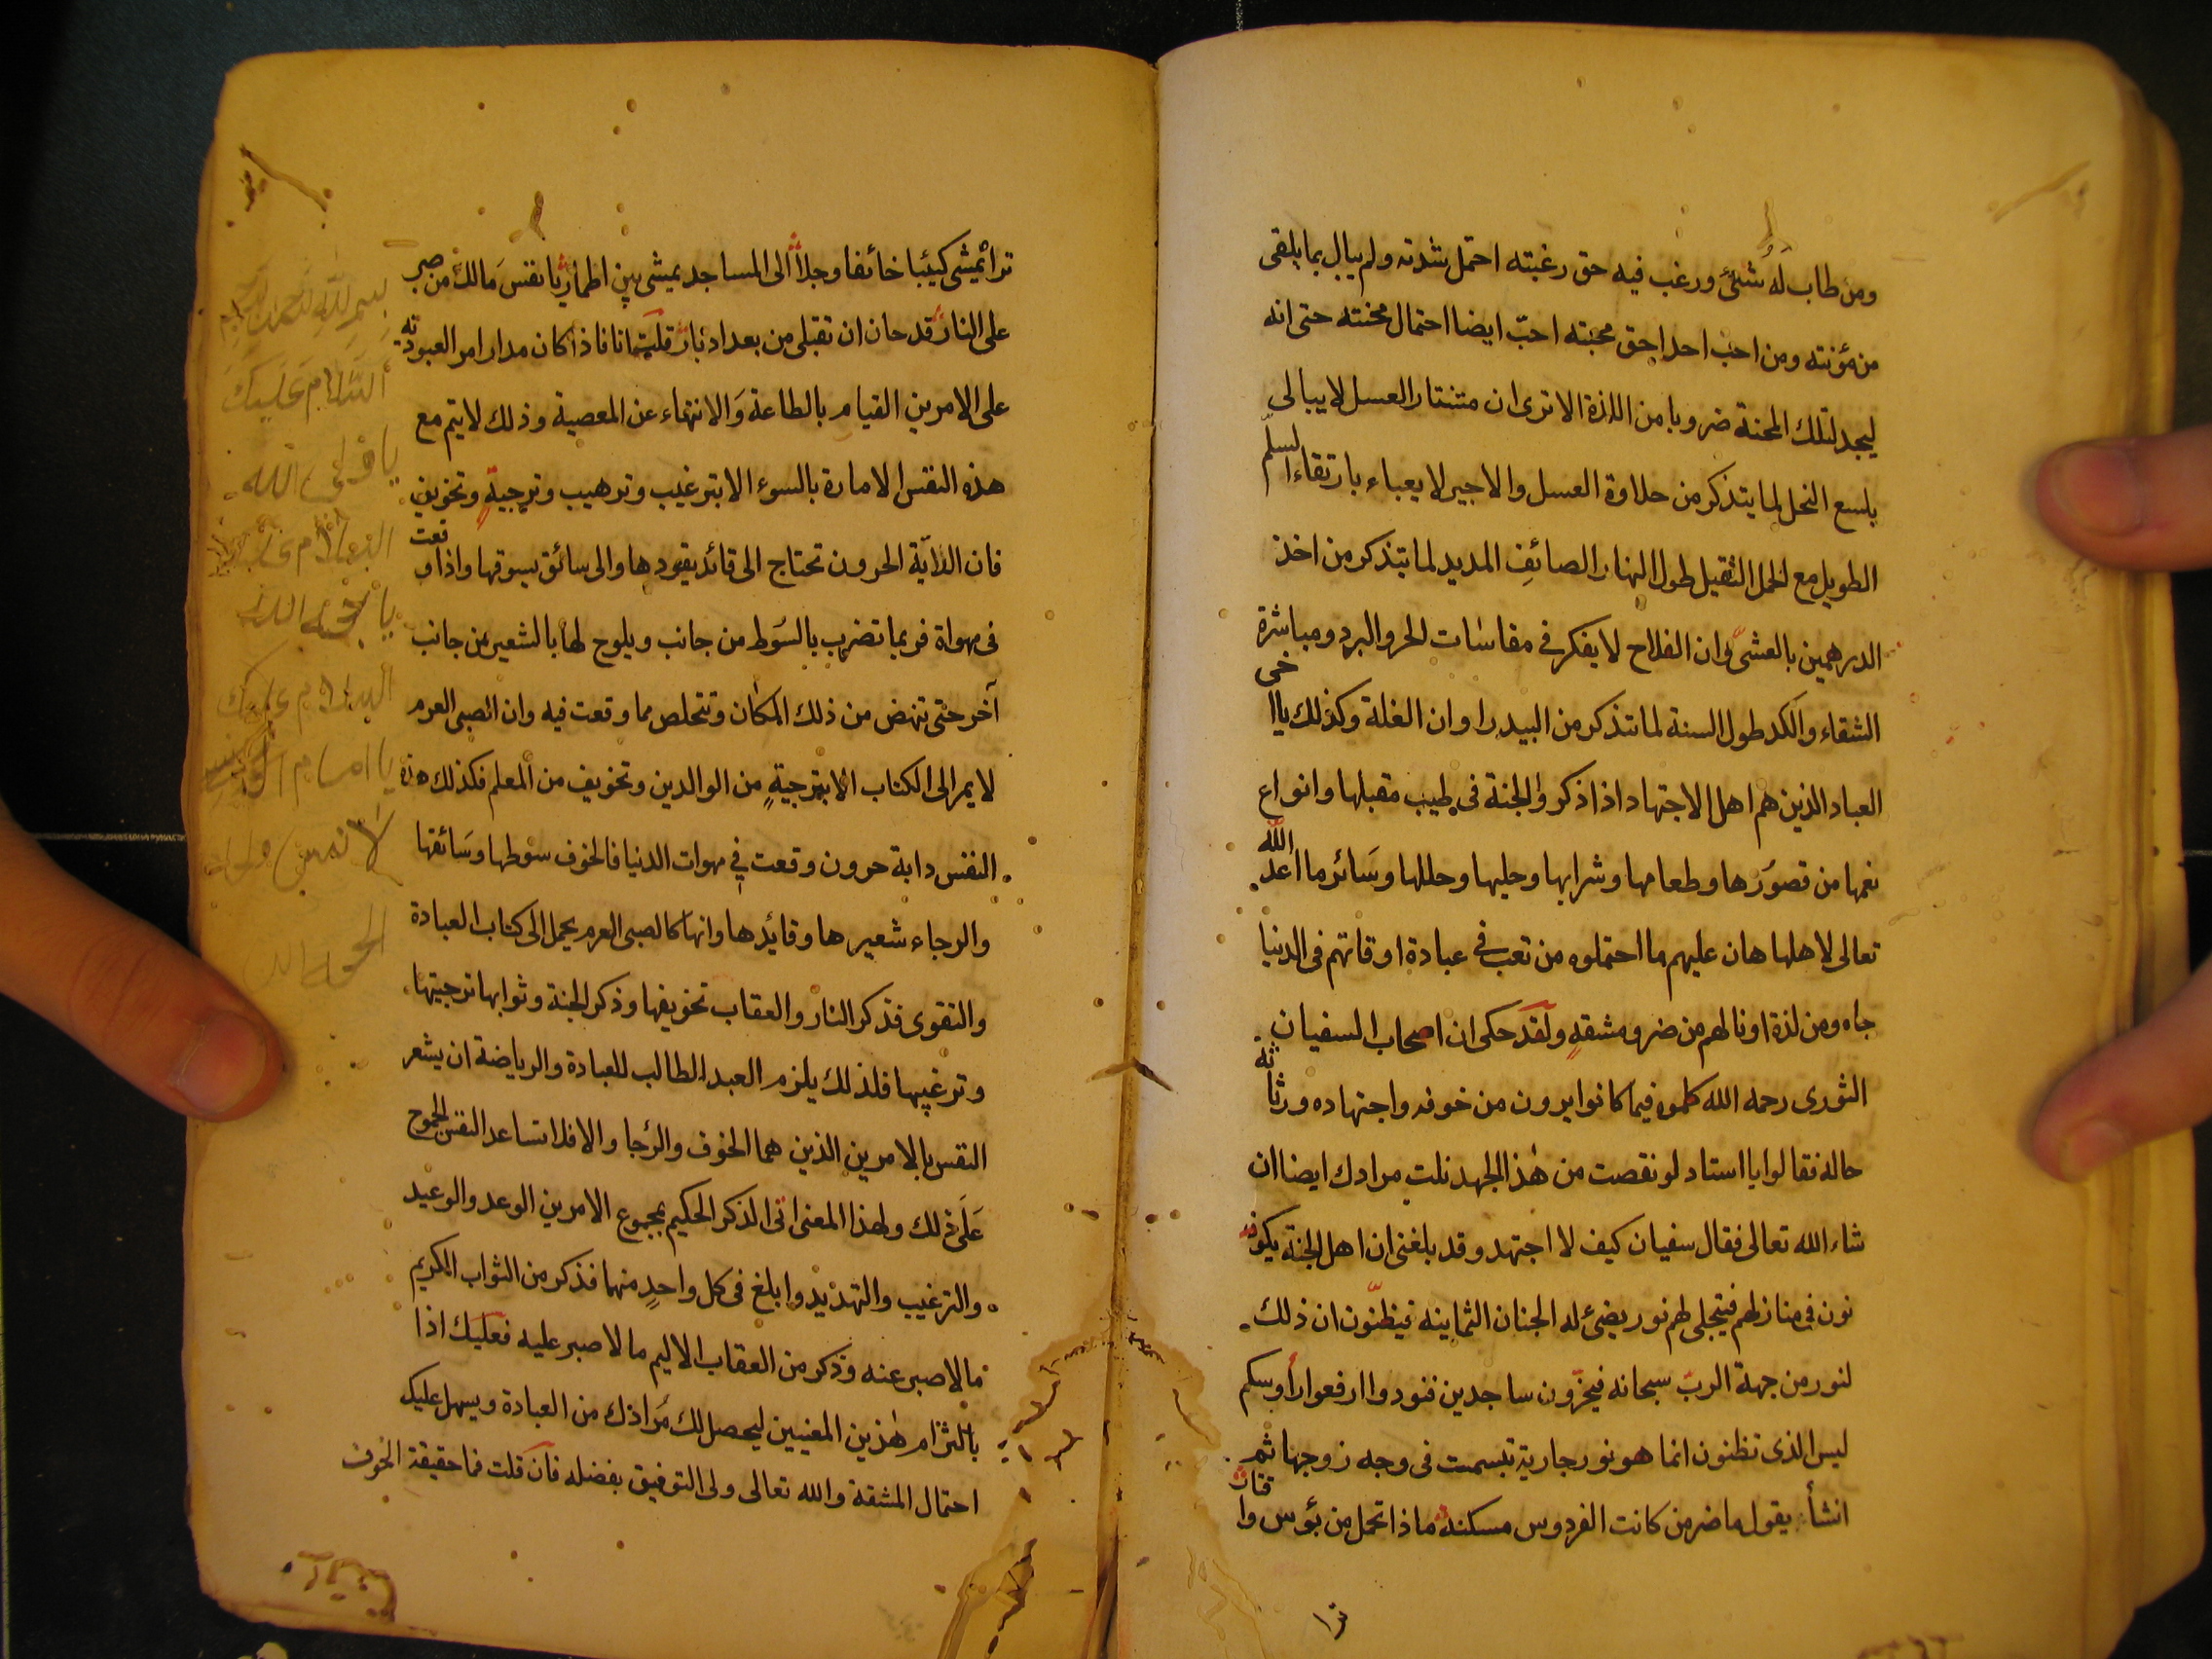 ومن طاب له شئ ورغب فيه حق رغبته احتمل شدته ولم يبال بما يلقى
من مؤنته ومن احب احدا حق محبته احبّ ايضا احتمال محنته حتى انه
ليجد لتلك المحنة ضروبا من اللذة الا ترى ان مشتار العسل لا يبالى
بلسع النحل لما يتذكر من حلاوة العسل والاجير لا يعباء بارتقاء السلّم
الطويل مع الحمل الثقيل طول النهار الصائف المديد لما يتذكر من اخذ
الدرهمين بالعشىّ وان الفلاح لا يفكر فى مقاسات الحر والبرد ومباشرة
الشقاء والكد طول السنة لما تتذكر من البيدر اوان الغلة وكذلك يا اخى
العباد الذين هم اهل الاجتهاد اذا ذكروا الجنة فى طيب مقبلها وانواع
نعمها من قصورها وطعامها وشرابها وحليها وحللها وسائر ما اعد الله
تعالى لاهلها هان عليهم ما احتملوه من تعب فى عبادة اوقاتهم فى الدنيا
جاه ومن لذة او نالهم من ضر ومشقة ولقد حكى ان اصحاب السفيان
الثورى رحمه الله كلموه فيما كانوا يرون من خوفه واجتهاده ورثاثة
حاله فقالوا يا استاد لو نقصت من هذا الجهد نلت مرادك ايضا ان
شاء الله تعالى فقال سفيان كيف لا اجتهد وقد بلغنى ان اهل الجنة يكو
نون فى منازلهم فيتجلى لهم نور يضئ له الجنان الثمانية فيظنّون ان ذلك
لنور من جهة الربّ سبحانه فيخرّون ساجدين فنودوا ارفعوا رأوسكم
ليس الذى تظنون انما هو نور جارية تبسمت فى وجه زوجها ثم
انشأ يقول ما ضر من كانت الفردوس مسكنه ماذا تحمل من بؤس واقتار
ترا
تراه يمشى كئيبا خائفا وجلا الى المساجد يمشى بين اطمار يا نفس مالك من صبر
على النار قد حان ان تقبلى من بعد ادبار قلت انا نا ذا كان مدار امر العبودية
على الامرين القيام بالطاعة والانتهاء عن المعصية وذلك لا يتم مع
هذه النفس الامارة بالسوء الا بترغيب وترهيب وترجية وتخويف
فان الدابة الحرون تحتاج الى قائد يقودها والى سائق يسوقها واذا وقعت
فى مهواة فربما تضرب بالسوط من جانب ويلوح لها بالشعير من جانب
آخر حتى تنهض من ذلك المكان وتتخلص مما وقعت فيه وان الصبى العرم
لا يمر الى الكتاب الا بترجية من الوالدين وتخويف من المعلم فكذلك هذه
النفس دابة حرون وقعت فى مهوات الدنيا فالخوف سوطها وسائقها
والرجاء شعيرها وقايدها وانها كالصبى العرم يحمل الى كتاب العبادة
والتقوى فذكر النار والعقاب تخويفها وذكر الجنة وثوابها ترجيتها
وترغيبها فلذلك يلزم العبد الطالب للعبادة والرياضة ان يشعر
النفس بالامرين الذين هما الخوف والرجا والا فلا تساعد النفس الجموح
على ذلك ولهذا المعنى اتى الذكر الحكيم بمجموع الامرين الوعد والوعيد
والترغيب والتهديد وابلغ فى كل واحد منهما فذكر من الثواب الكريم
ما لا صبر عنه وذكر من العقاب الاليم ما لا صبر عليه فعليك اذا
بالتزام هذين المعنيين ليحصل لك مرادك من العبادة ويسهل عليك
احتمال المشقة والله تعالى ولى التوفيق بفضله فان قلت فما حقيقة الخوف
بسم الله الرحمن الرحيم
السلام عليك
يا ولى الله
السلام عليك
يا حجة الله
السلام عليك
يا امام